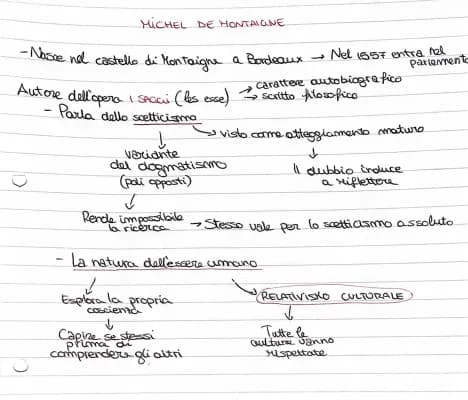 MICHEL DE MONTAIGNE
- Nasce nel castello di Montaigne a Bordeaux → Nel 1557 entra nel parlamento
Autore dell'opera i SAGGI (les esse) → carattere autobiografico
→ scritto filosofico
- Parla dello scetticismo
→ visto come atteggiamento maturo
variante del dogmatismo (poli opposti)
Il dubbio induce a riflettere
Rende impossibile la ricerca → Stesso vale per lo scetticismo assoluto
- La natura dell'essere umano
Esplora la propria coscienza
RELATIVISMO CULTURALE
Capire se stessi prima di comprendere gli altri
Tutte le culture vanno rispettate